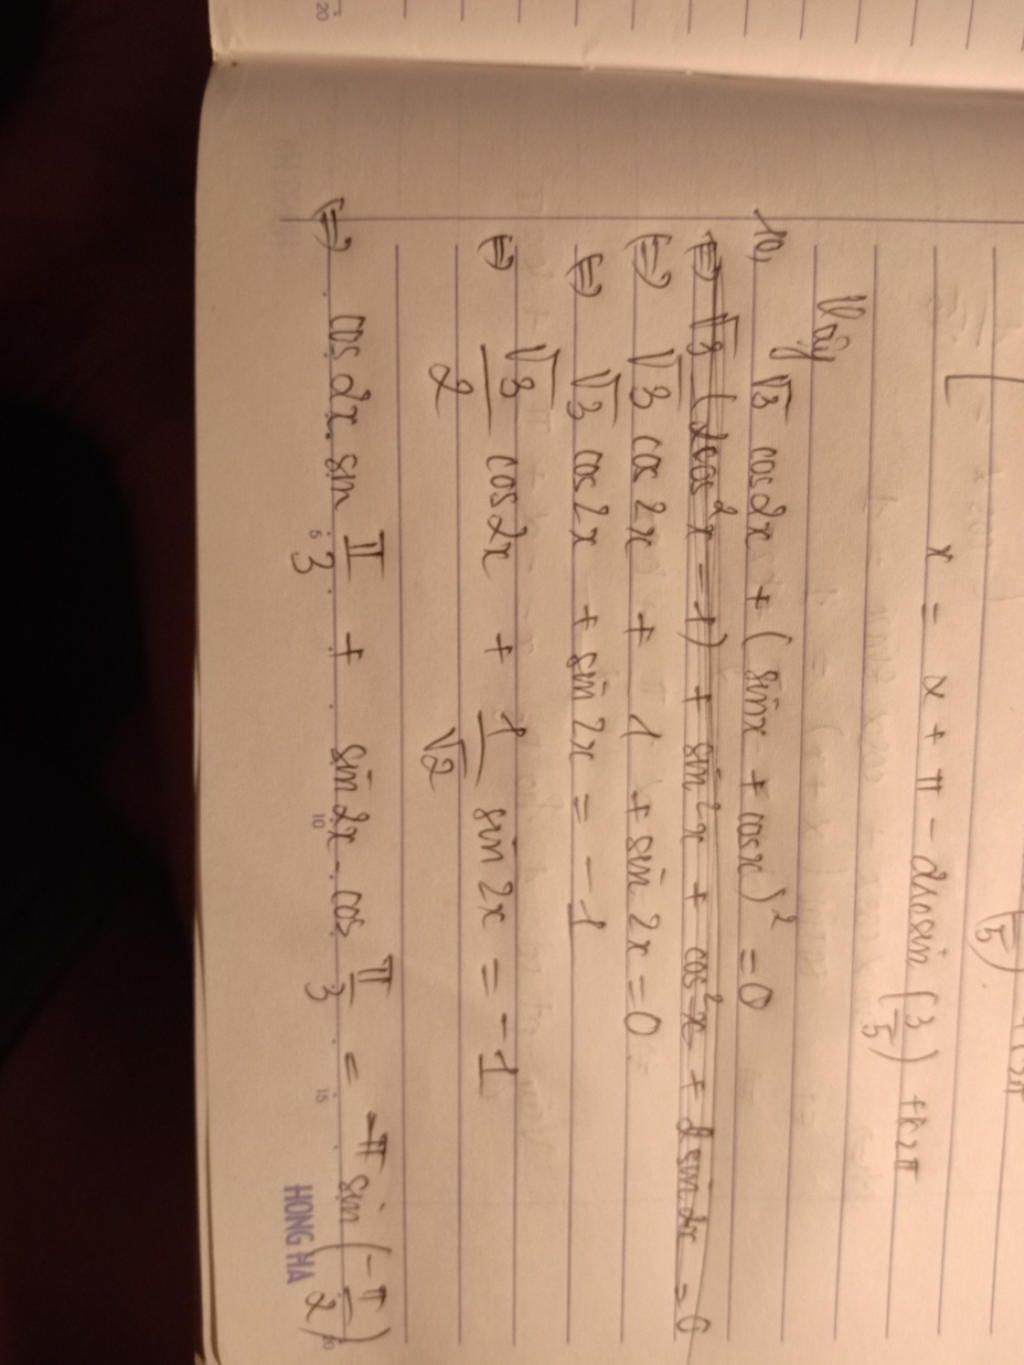 x = α + π - arcsin (3/5) + k2π
Vậy
10, √3 cos2x + (sinx + cosx)² = 0
⇔ √3 (2cos²x - 1) + sin²x + cos²x + 2sin2x = 0
⇔ √3 cos 2x + 1 + sin 2x = 0
⇔ √3 cos 2x + sin 2x = -1
⇔ √3/2 cos2x + 1/√2 sin 2x = -1
⇔ cos 2x . sin π/3 + sin 2x . cos π/3 = -π sin (-π/2)
5 10 15 20
HONG HA
20